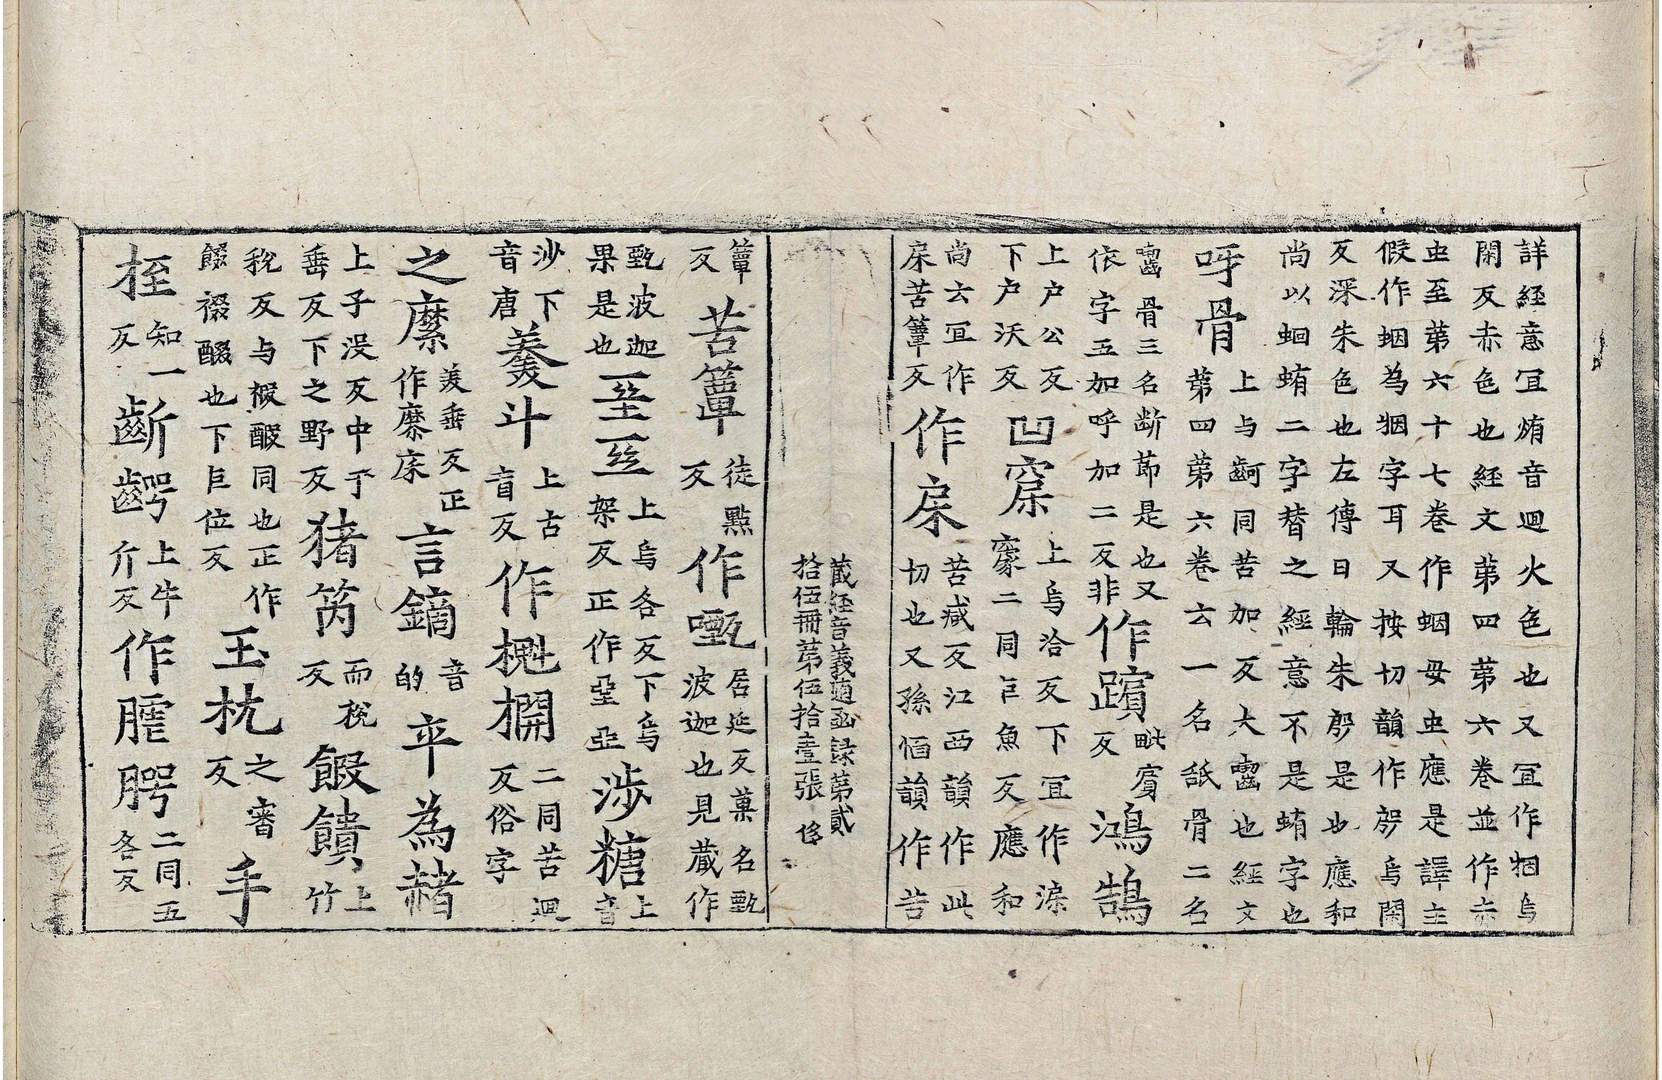 詳經意冝烠音迴火色也又冝作䄄烏
閑反赤色也經文第四第六卷並作赤
虫至第六十七卷作蛔母虫應是譯主
假作蛔為烟字耳又按切韻作㱼烏閑
反深朱色也左傳日輪朱㱼是也應和
尚以蛔蛕二字替之經意不是蛕字也
呀骨
上与齖同苦加反大齧也經文
第四第六卷云一名䑛骨二名
齧骨三名断莭是也又
依字五加呼加二反非
作蹟
毗賔
反
鴻鵠
上户公反
下户沃反
凹窊
上烏洽反下冝作㴱
㝱二同乞魚反應和
尚云冝作
㡾苦簟反
作㡾
苦咸反江西韻作此
切也又孫愐韻作苦
藏經音義随函録第貳
拾伍冊第伍拾壹張 侈
簟
反
苦簟
徒㸃
反
作㽄
居延反菓名甄
波迦也見藏作
甄波迦
果是也
堊垩
上烏各反下烏
架反正作堊亞
涉糖
上音
沙下
音唐
羹斗
上古
盲反
作㮯棢
二同苦迴
反俗字
之縻
美垂反正
作縻床
言鏑
音
的
平為赭
上子没反中于
垂反下之野反
猪笍
而梲
反
餟饋
上竹
税反与裰醊同也正作
餟裰醊也下巨位反
玉枕
之審
反
手
桎
知一
反
齗齶
上牛
介反
作腟腭
二同五
各反